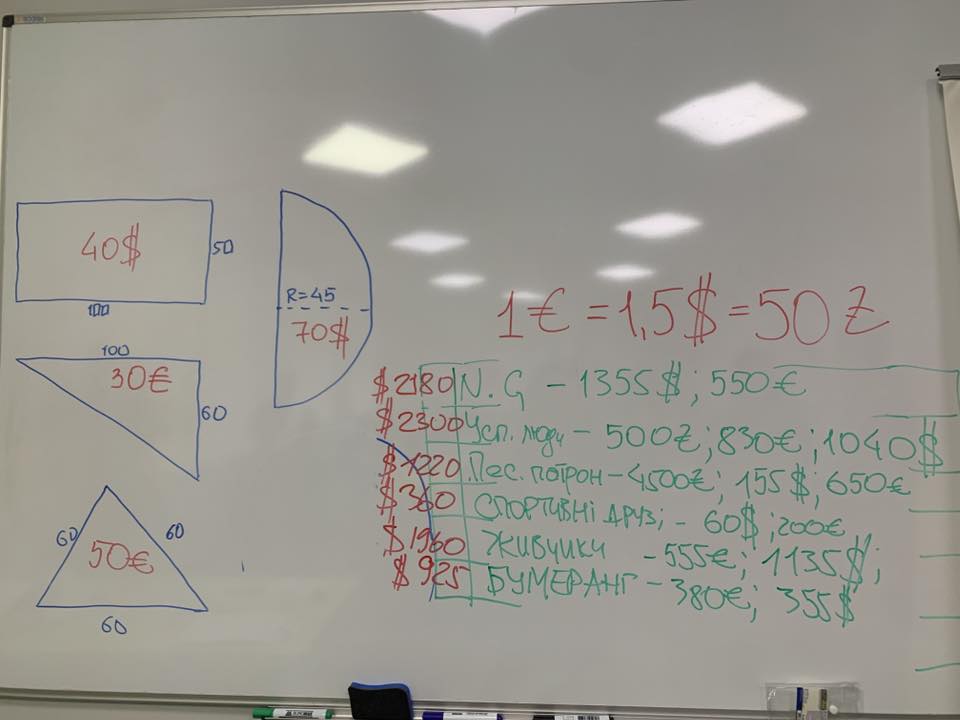 40$
50
100
100
30€
60
60
60
50€
60
R=45
70$
1€ = 1,5$ = 50Z
$2180 N.G - 1355$; 550€
$2300 Усп. люди - 500Z; 830€; 1040$
$1220 Пес. потрон - 4500Z; 155$; 650€
$360 Спортивні друзі - 60$; 200€
$1960 Живчики - 555€; 1135$;
$925 БУМЕРАНГ - 380€; 355$